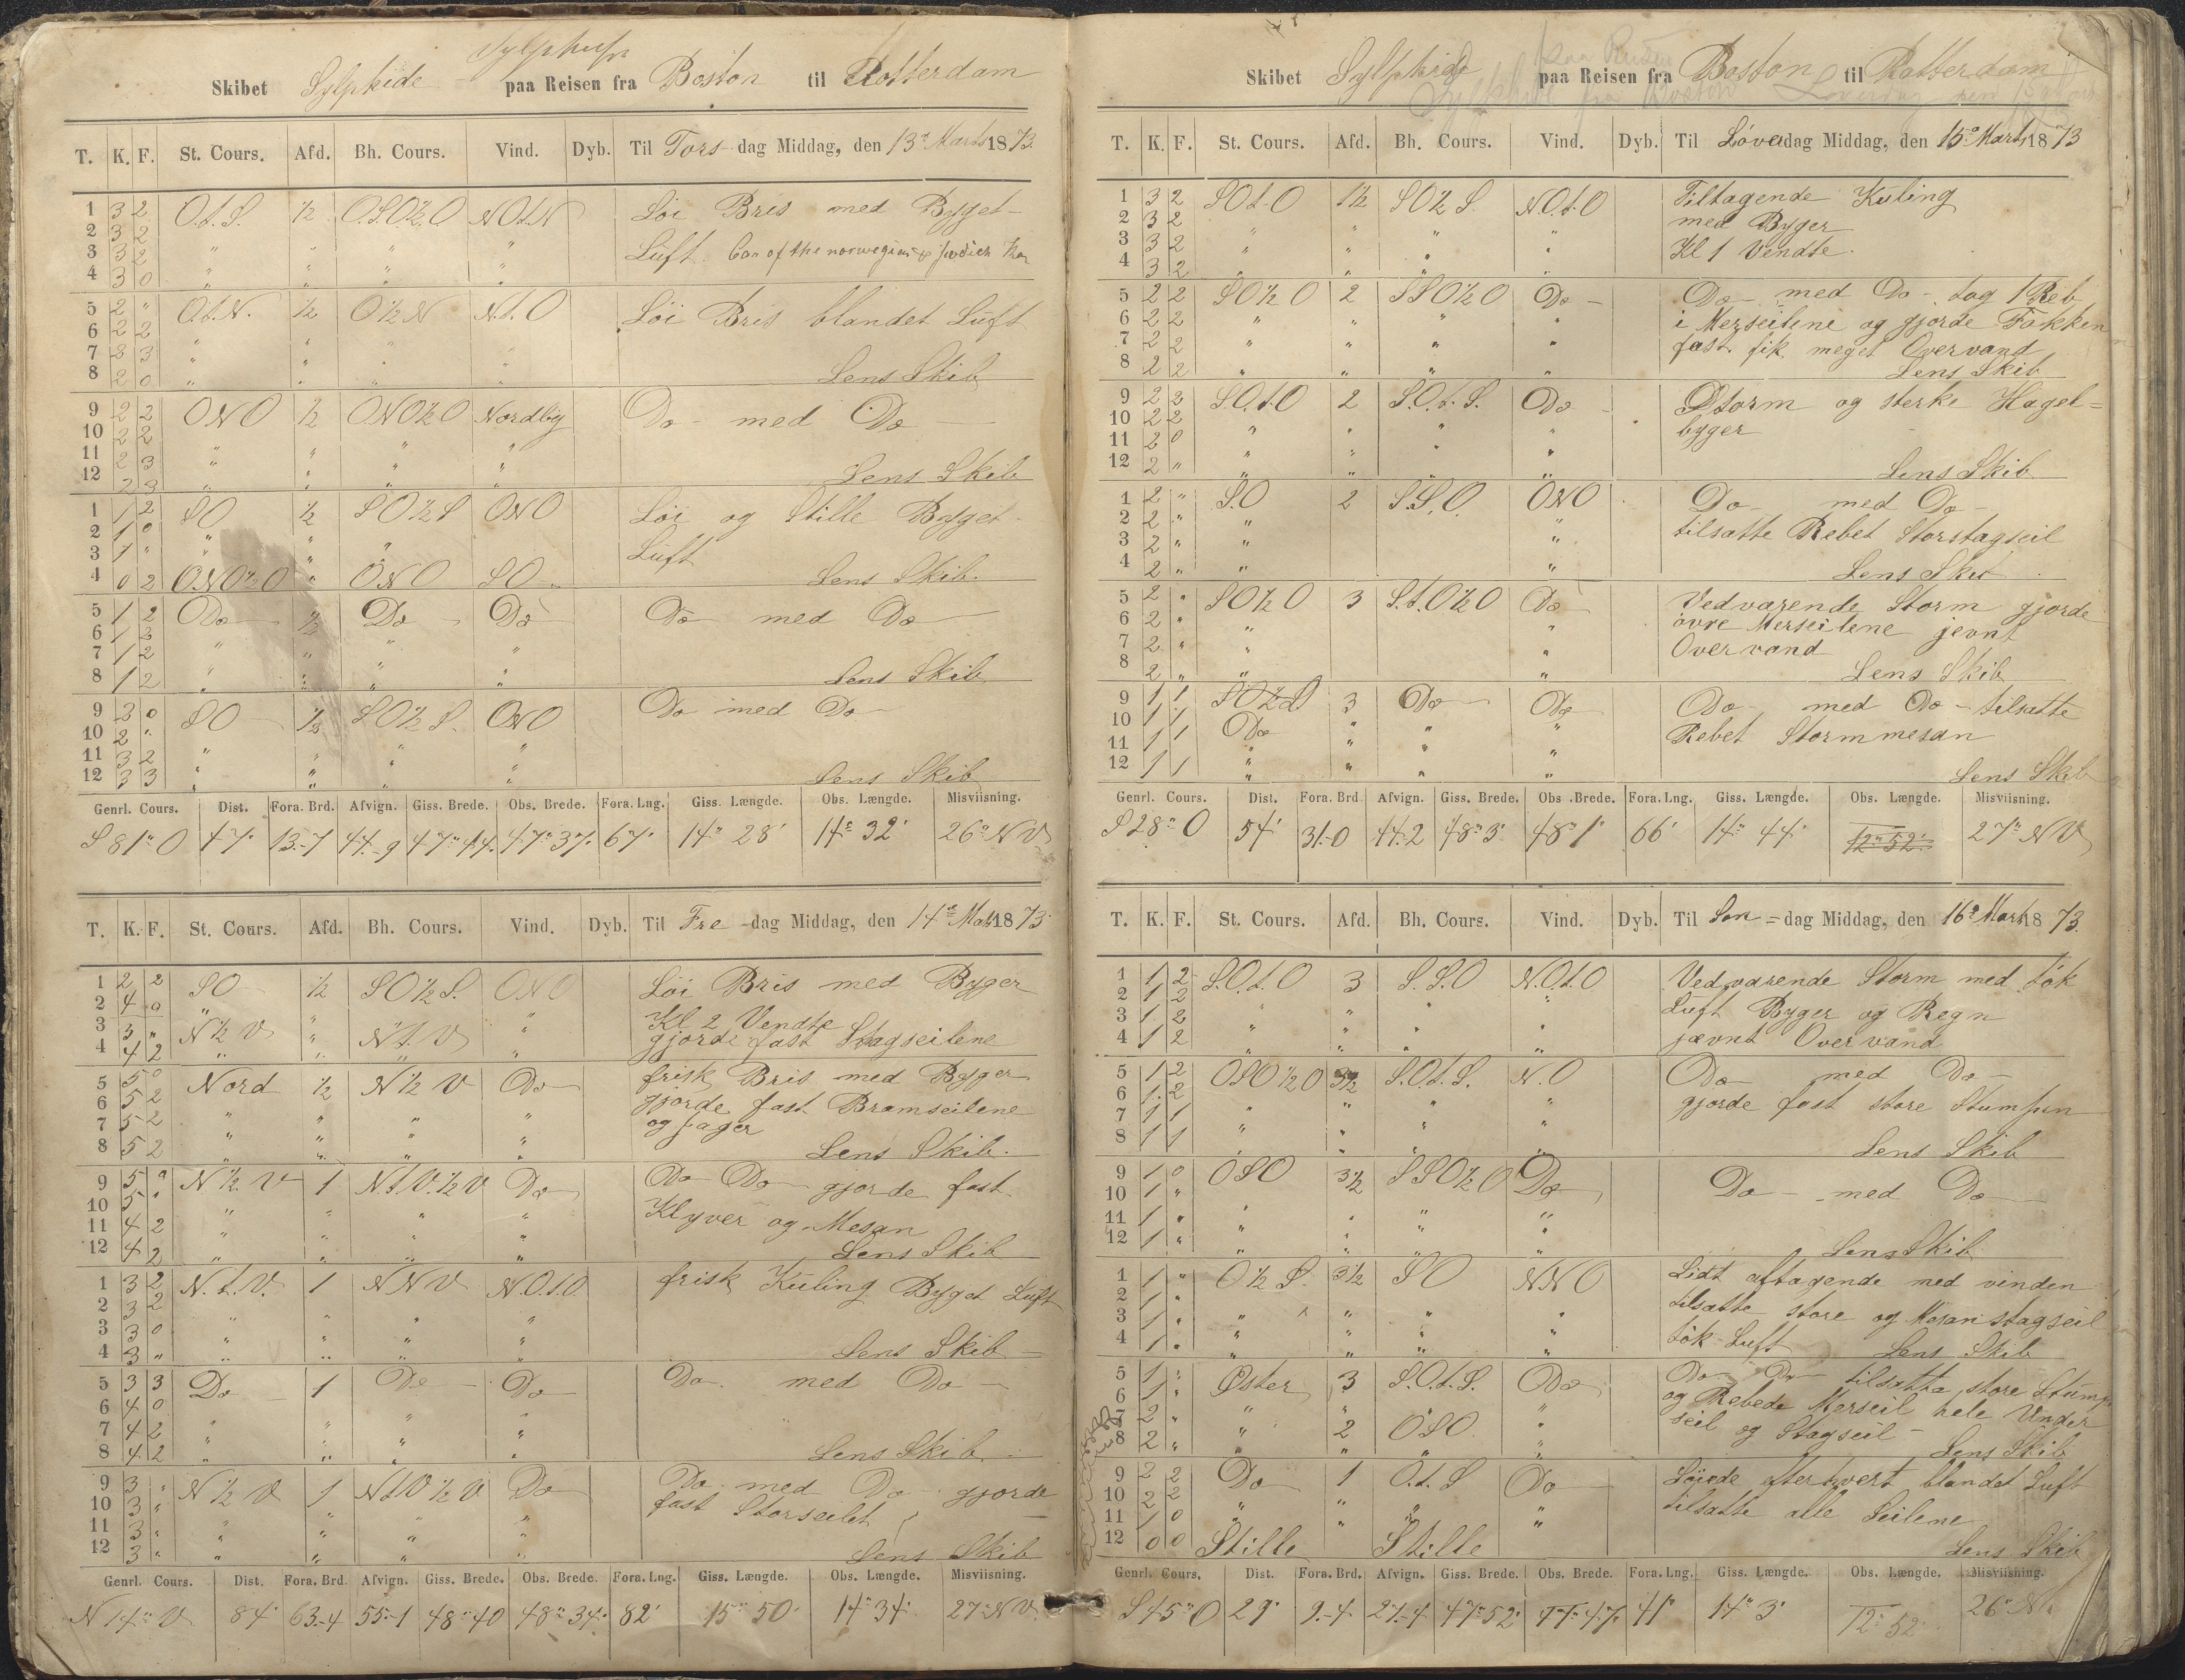 Sylphide
Skibet Sylphide paa Reisen fra Boston til Rotterdam
T. K. F. St. Cours. Afd. Bh. Cours. Vind. Dyb. Til Tors-dag Middag, den 13de Marts 1873.
1 3 2 O.t.S. ½ O.S.O.½.O NOt.N Löi Bris med Byget
2 3 2
3 3 2 " " " " Luft. Can of the norwegian &
4 3 0 " " " "
5 2 " O.t.N. ½ O½N N.t.O Löi Bris blandet Luft
6 2 2
7 2 3 " " " "
8 2 0 " " " " Lens Skib
9 2 2 ONO ½ ONO½O Nordlig Do med Do
10 2 2
11 2 3 " " " "
12 2 3 " " " " Lens Skib
1 1 2 SO ½ SO½S ONO Löi og Stille Byget
2 1 0 " " "
3 1 " " " Luft
4 0 2 ONO½O " ONO SO Lens Skib.
5 1 2 Do ½ Do Do Do med Do
6 1 3
7 1 2 " " " "
8 1 2 " " " " Lens Skib
9 3 0 SO ½ SO½S. ONO Do med Do
10 2 "
11 3 2 " " " "
12 3 3 " " " " Lens Skib
Genrl. Cours. Dist. Fora. Brd. Afvign. Giss. Brede. Obs. Brede. Fora. Lng. Giss. Længde. Obs. Længde. Misviisning.
S 81° O 47' 13.-7 44.-9 47° 44' 47° 37' 67' 14° 28' 14° 32' 26° NV
T. K. F. St. Cours. Afd. Bh. Cours. Vind. Dyb. Til Fre-dag Middag, den 14de Mats 1873
1 2 2 SO ½ SO½S. ONO Löi Bris med Byger
2 4 0 " Kl 2 Vendte
3 3 " N½V " N.t.V " gjorde fast Stagseilene
4 4 2 " " " "
5 5 0 Nord ½ N½V Do frisk Bris med Byger
6 5 2 gjorde fast Bramseilene
7 5 2 " " " " og jager
8 5 2 " " " " Lens Skib.
9 5 " N½V 1 N.t.V.½V Do Do Do gjorde fast
10 5 " Klyver og Mesan
11 4 2 " " " "
12 4 2 " " " " Lens Skib
1 3 2 N.t.V. 1 NNV N.O.t.O frisk Kuling Byget Luft
2 3 2
3 3 0 " " " "
4 3 " " " " " Lens Skib
5 3 3 Do 1 Do Do Do med Do
6 4 0
7 4 2 " " " "
8 4 2 " " " " Lens Skib
9 3 " N½V 1 NtV½V Do Do med Do gjorde
10 3 " fast Storseilet
11 3 " " " " "
12 3 " " " " " Lens Skib
Genrl. Cours. Dist. Fora. Brd. Afvign. Giss. Brede. Obs. Brede. Fora. Lng. Giss. Længde. Obs. Længde. Misviisning.
N 14° V 84' 63.-4 55.-1 48° 40 48° 34' 82' 15° 50' 14° 34' 27° NV
paa Reisen
Skibet Sylphide paa Reisen fra Boston til Rotterdam
Sylphide fra Boston Loverdag den 15
T. K. F. St. Cours. Afd. Bh. Cours. Vind. Dyb. Til Löverdag Middag, den 15de Marts 1873
1 3 2 SOt.O 1½ SO½S. N.O.t.O Tiltagende Kuling
2 3 2 med Byger
3 3 2 " " " " Kl 1 Vendte.
4 3 2 " " " "
5 2 2 SO½O 2 SSO½O Do Do med Do tog 1 Reb
6 2 2 " " " i Merseilene og gjorde Fokken
7 2 2 " " " " fast. fik meget Overvand
8 2 2 " " " " Lens Skib
9 2 3 S.O.t.O 2 S.O.t.S. Do Storm og sterke Hagel=
10 2 2 " " " " byger
11 2 0 " " "
12 2 " " " " " Lens Skib
1 2 " S.O 2 S.S.O. ONO Do med Do
2 2 " " " tilsatte Rebet Storstagseil
3 2 " "
4 2 " " " Lens Skib
5 2 " SO½O 3 S.t.O½O Do Vedvarende Storm gjorde
6 2 " " " övre Merseilene jevnt
7 2 " " " Overvand
8 2 " " " Lens Skib
9 1 1 SO½S 3 Do Do Do med Do tilsatte
10 1 1 Do " " " Rebet Stormmesan
11 1 1 " " " "
12 1 1 " " " " Lens Skib
Genrl. Cours. Dist. Fora. Brd. Afvign. Giss. Brede. Obs. Brede. Fora. Lng. Giss. Længde. Obs. Længde. Misviisning.
S 28° O 54' 31.-0 44.2 48° 3' 48° 1' 66' 14° 44' 12° 52' 27° NV
T. K. F. St. Cours. Afd. Bh. Cours. Vind. Dyb. Til Son=dag Middag, den 16de Marts 1873.
1 1 2 S.O.t.O 3 S.S.O N.O.t.O Vedvarende Storm med tök
2 1 2 " " " Luft Byger og Regn
3 1 2 " jævnt Overvand
4 1 2 " " " "
5 1 2 OSO½O 3½ S.O.t.S. N.O Do med Do
6 1 2 " " " " gjorde fast store Stumpen
7 1 1
8 1 1 " " " " Lens Skib
9 1 0 OSO 3½ SSO½O Do Do med Do
10 1 "
11 1 " " " " "
12 1 " " " " " Lens Skib
1 1 " O½S. 3½ SO NNO Lidt aftagende med vinden
2 1 " tilsatte store og Mesan stagseil
3 1 " " " " " tök Luft
4 1 " " " " " Lens Skib
5 1 " Øster 3 S.O.t.S. Do Do Do tilsatte store Stump
6 1 " " " " og Rebede Merseil hele Under
7 2 " " 2 OSO " seil og Stagseil
8 2 " " " " " Lens Skib
9 2 2 Do 1 O.t.S Do Löiede efterhvert blandet Luft
10 2 2 " " " " tilsatte alle Seilene
11 1 0 " " " "
12 0 0 Stille Stille Lens Skib
Genrl. Cours. Dist. Fora. Brd. Afvign. Giss. Brede. Obs. Brede. Fora. Lng. Giss. Længde. Obs. Længde. Misviisning.
S 45° O 29' 9.-4 27.-4 47° 52' 47° 47' 41' 14° 3' 12° 52' 26° N.